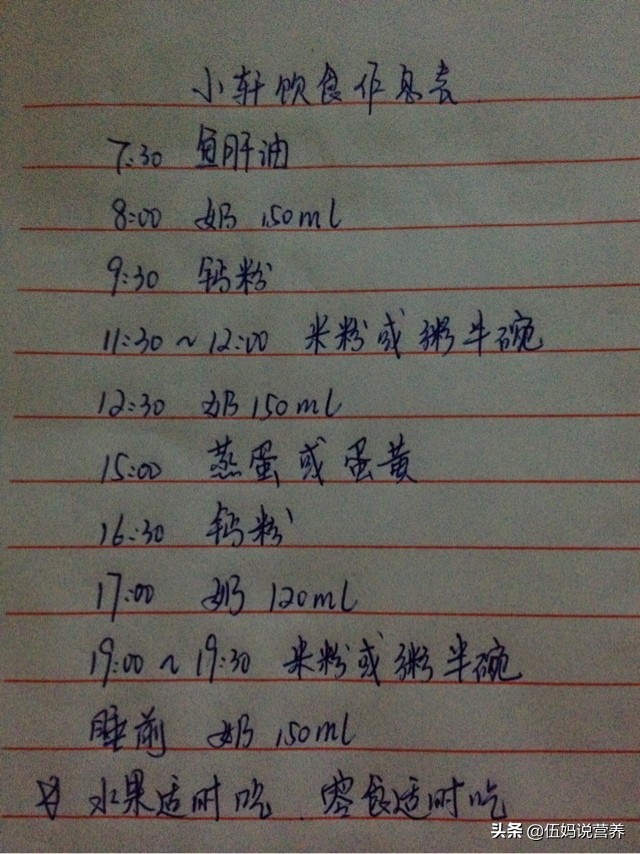 小轩饮食作息表
7:30 鱼肝油
8:00 奶 150ml
9:30 钙粉
11:30 ~ 12:00 米粉或粥半碗
12:30 奶 150ml
15:00 蒸蛋或蛋黄
16:30 钙粉
17:00 奶 120ml
19:00 ~ 19:30 米粉或粥半碗
睡前 奶 150ml
水果适时吃. 零食适时吃
头条 @伍妈说营养